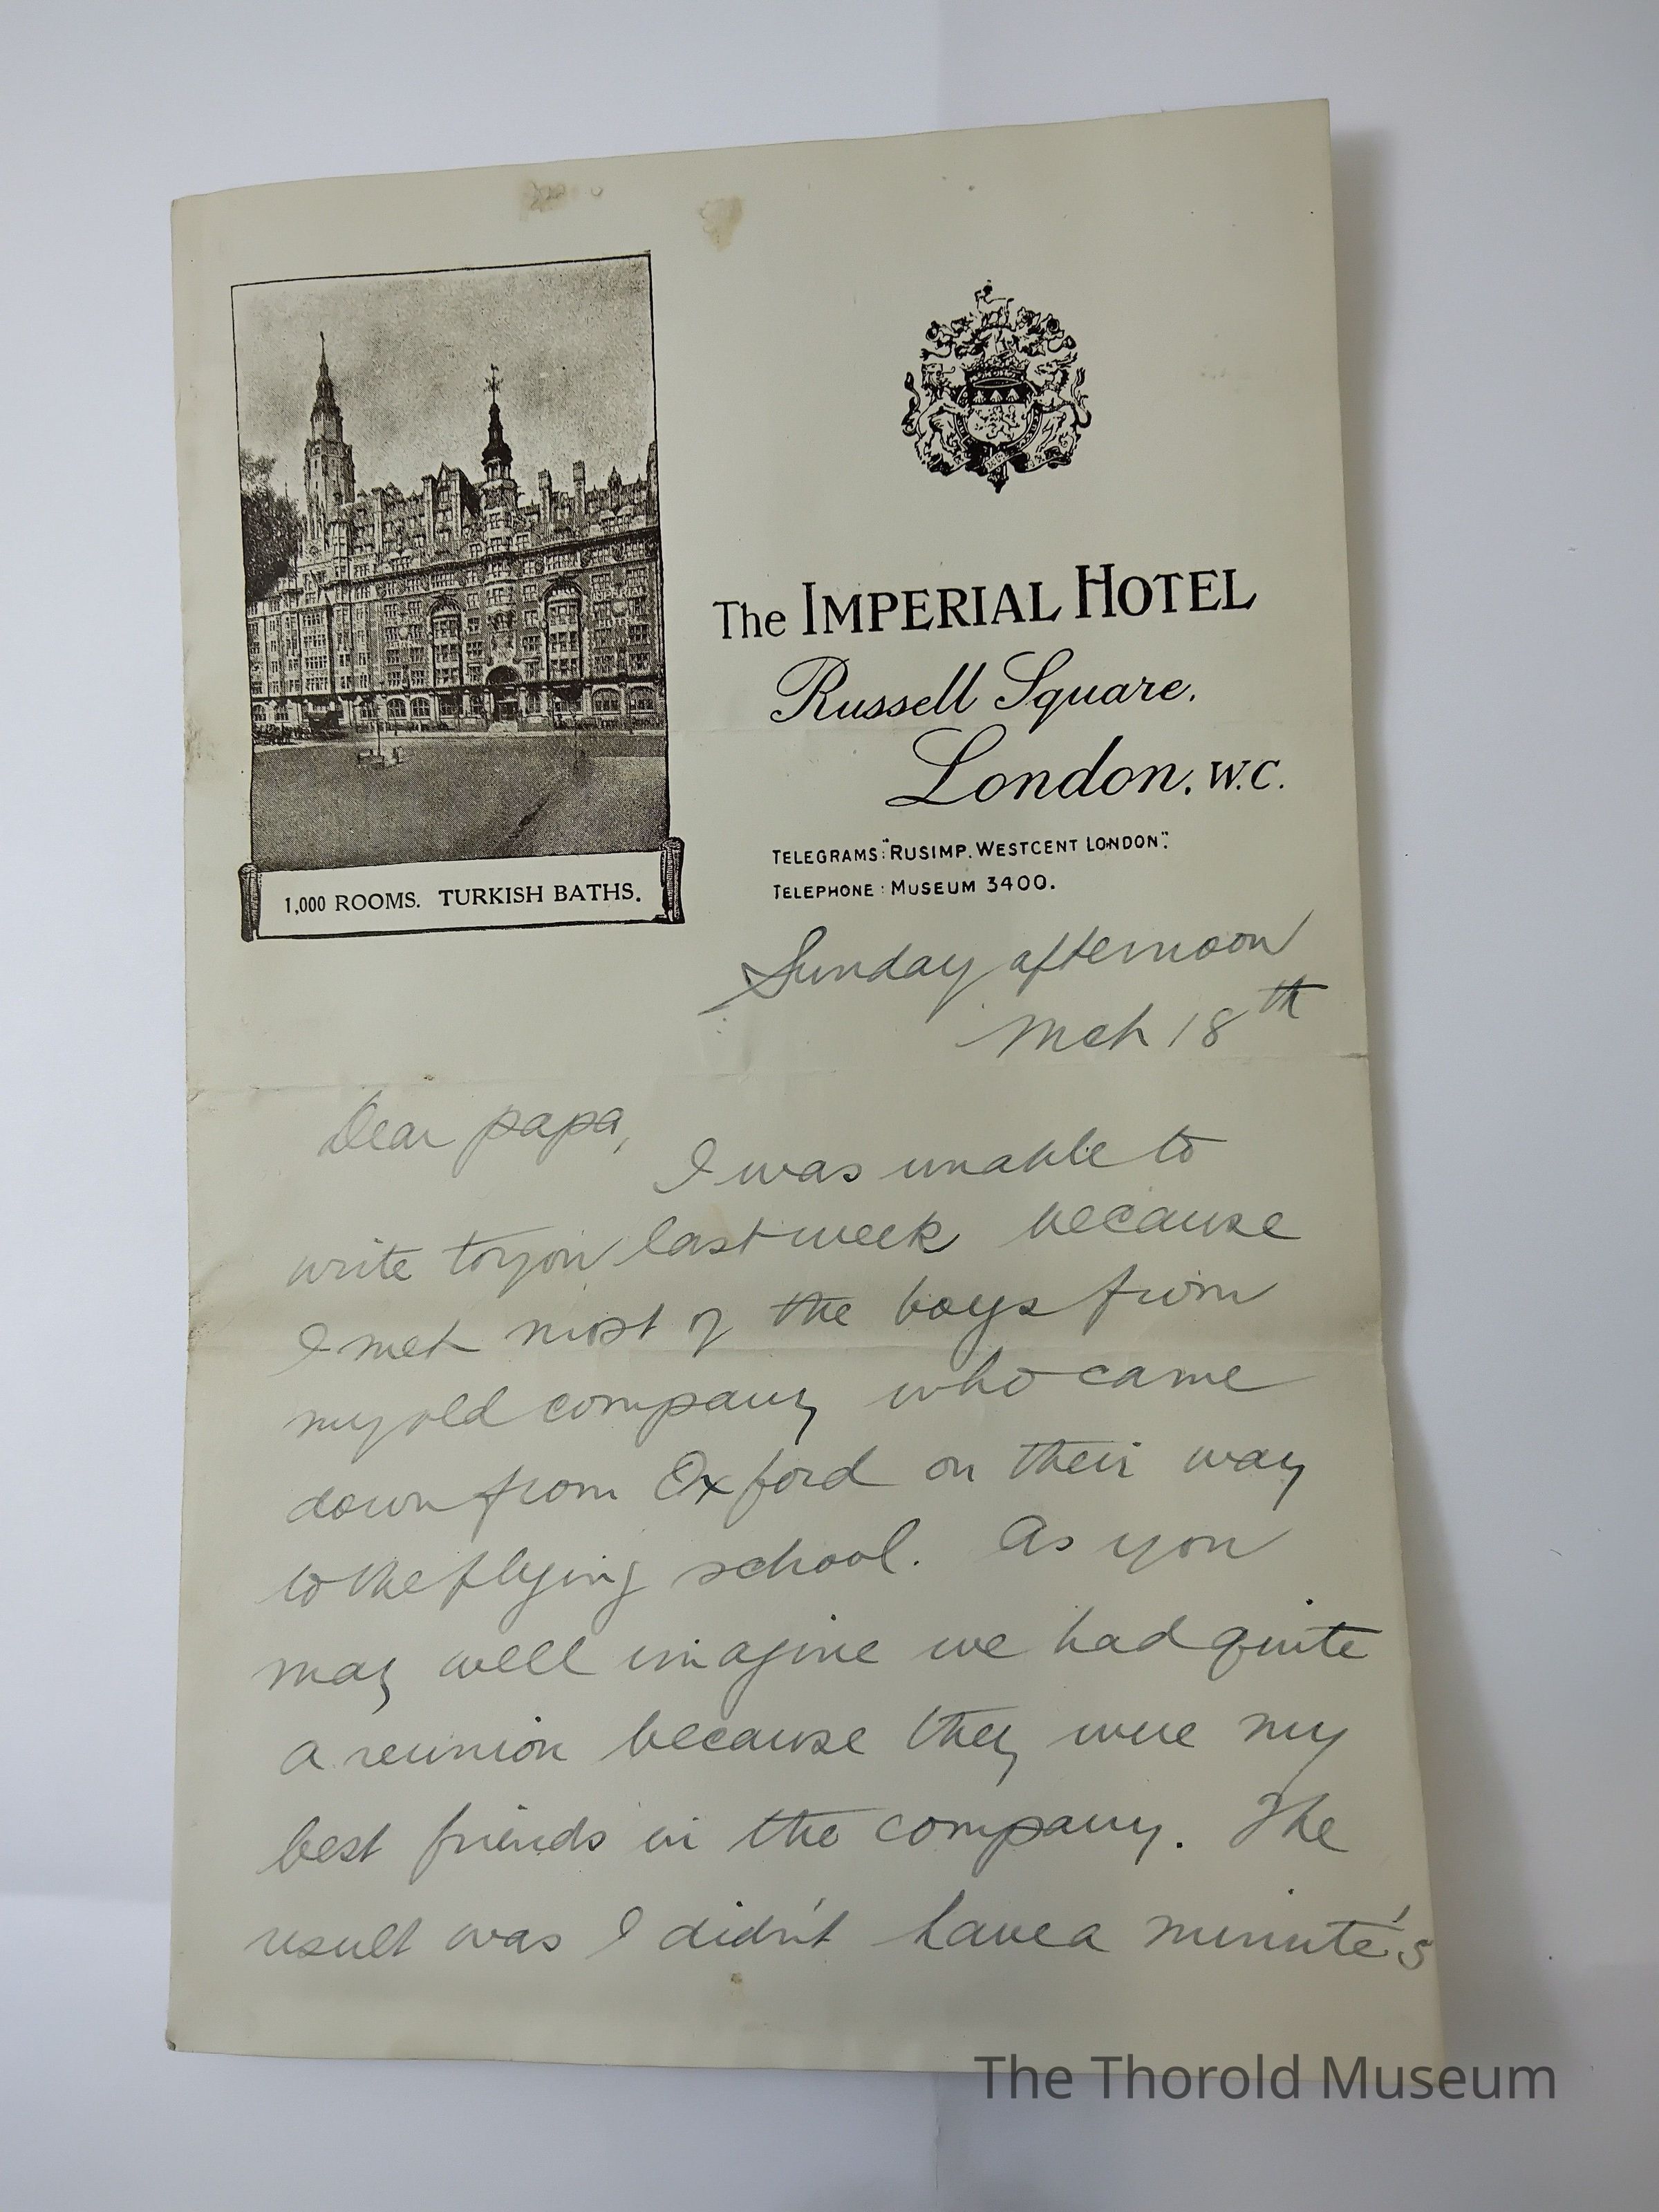 The IMPERIAL HOTEL
Russell Square,
London. W.C.
TELEGRAMS: "RUSIMP. WESTCENT LONDON".
TELEPHONE: MUSEUM 3400.
1,000 ROOMS. TURKISH BATHS.
Sunday afternoon
Mch 18th
Dear papa,
I was unable to
write to you last week because
I met most of the boys from
my old company who came
down from Oxford on their way
to the flying school. As you
may well imagine we had quite
a reunion because they were my
best friends in the company. The
result was I didn't have a minute's
The Thorold Museum